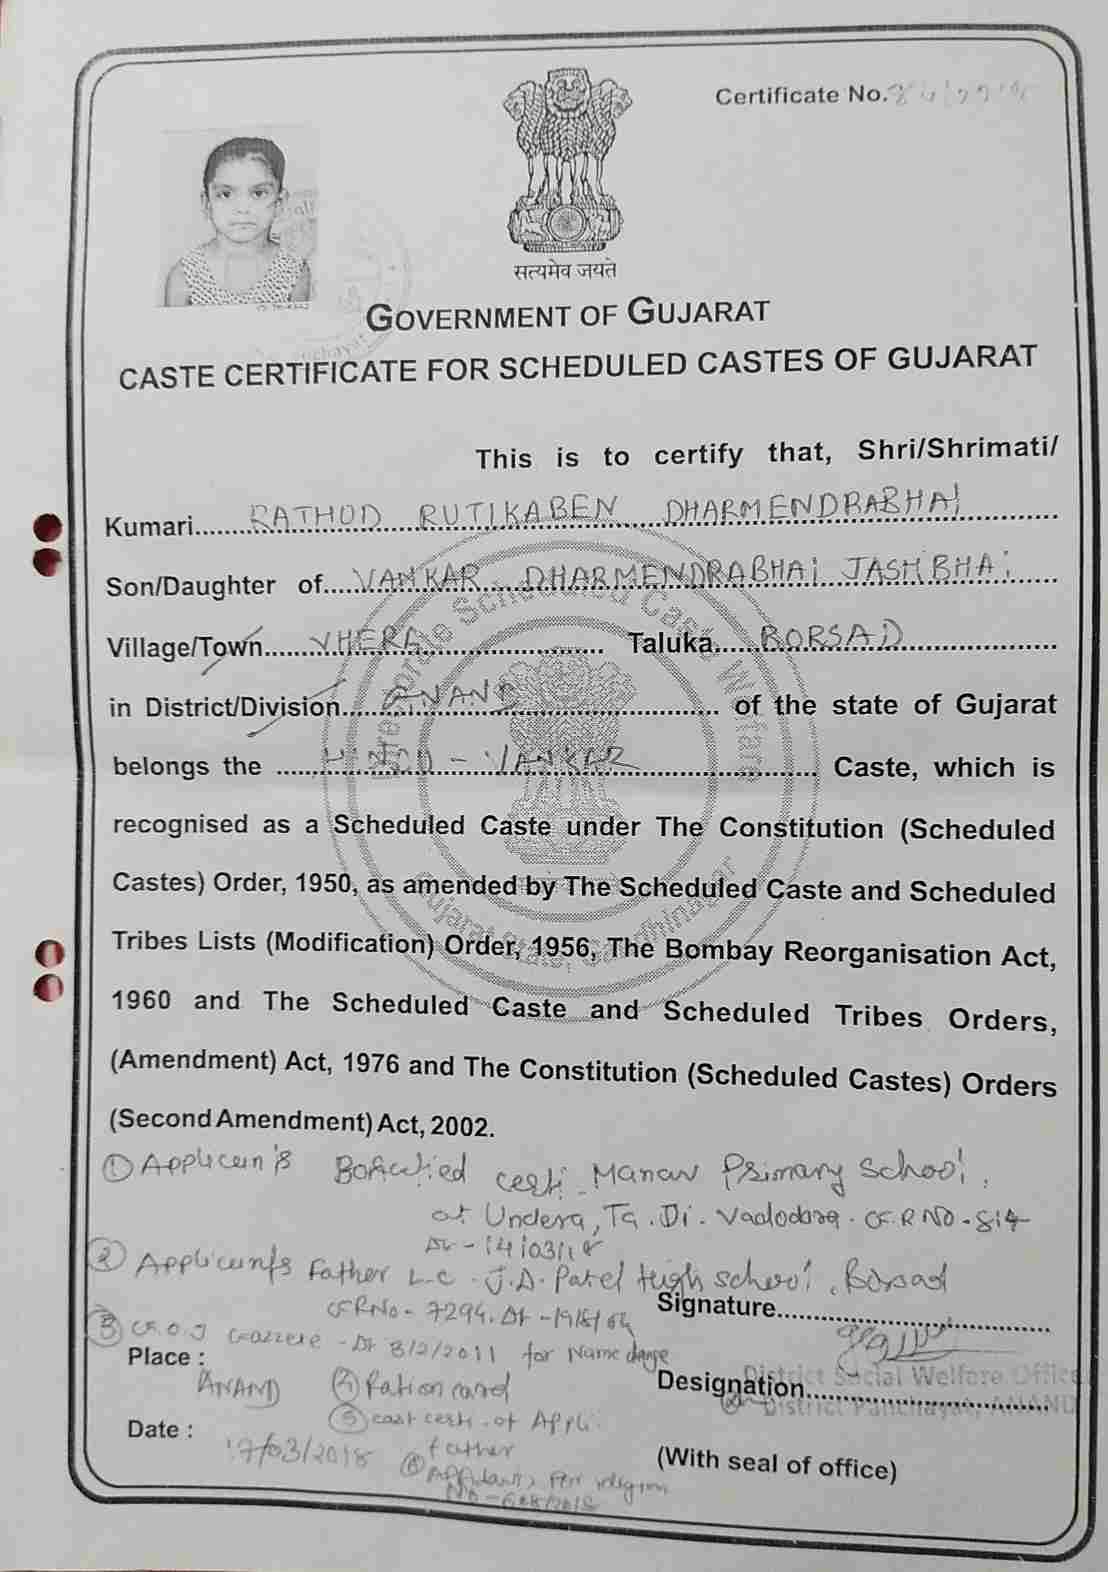 Certificate No.
सत्यमेव जयते
GOVERNMENT OF GUJARAT
CASTE CERTIFICATE FOR SCHEDULED CASTES OF GUJARAT
This is to certify that, Shri/Shrimati/
Kumari....RATHOD RUTIKABEN DHARMENDRABHAI
Son/Daughter of....VANKAR DHARMENDRABHAI JASHBHAI
Village/Town....VHERA.... Taluka....BORSAD
in District/Division....ANAND.... of the state of Gujarat
belongs the ....HINDU - VANKAR.... Caste, which is
recognised as a Scheduled Caste under The Constitution (Scheduled
Castes) Order, 1950, as amended by The Scheduled Caste and Scheduled
Tribes Lists (Modification) Order, 1956, The Bombay Reorganisation Act,
1960 and The Scheduled Caste and Scheduled Tribes Orders,
(Amendment) Act, 1976 and The Constitution (Scheduled Castes) Orders
(Second Amendment) Act, 2002.
① Applicant's Bonafied certi. Manav Primary School,
at Undera, Ta. Di. Vadodara. G.R NO - 814
Dt - 14/03/18
② Applicant's Father L.C. J.D. Patel High school, Borsad
G.R No - 7294. Dt -
Signature
③ G.O.I Gazzete - Dt 3/2/2011 for Name change
Place :
ANAND
④ Ration card
Designation
District Social Welfare Office
District Panchayat, ANAND
⑤ cast certi. of Appli.
father
Date :
17/03/2018
⑥
(With seal of office)